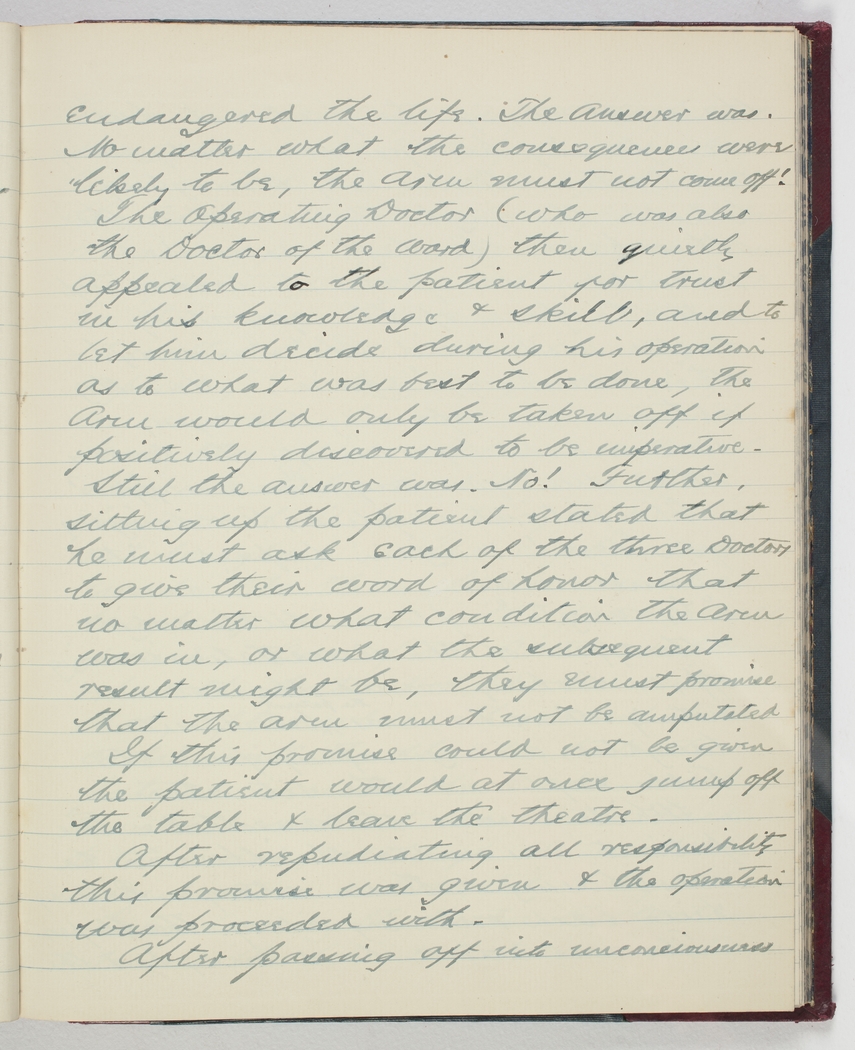 endangered the life. The Answer was.
No matter what the consequences were
likely to be, the Arm must not come off!
The Operating Doctor (who was also
the Doctor of the Ward) then quietly
appealed to the patient for trust
in his knowledge & skill, and to
let him decide during his operation
as to what was best to be done, the
Arm would only be taken off if
positively discovered to be imperative.
Still the answer was. No! Further,
sitting up the patient stated that
he must ask each of the three Doctors
to give their word of honor that
no matter what condition the Arm
was in, or what the subsequent
result might be, they must promise
that the arm must not be amputated
If this promise could not be given
the patient would at once jump off
the table & leave the theatre.
After repudiating all responsibility
this promise was given & the operation
was proceeded with.
After passing off into unconciousness